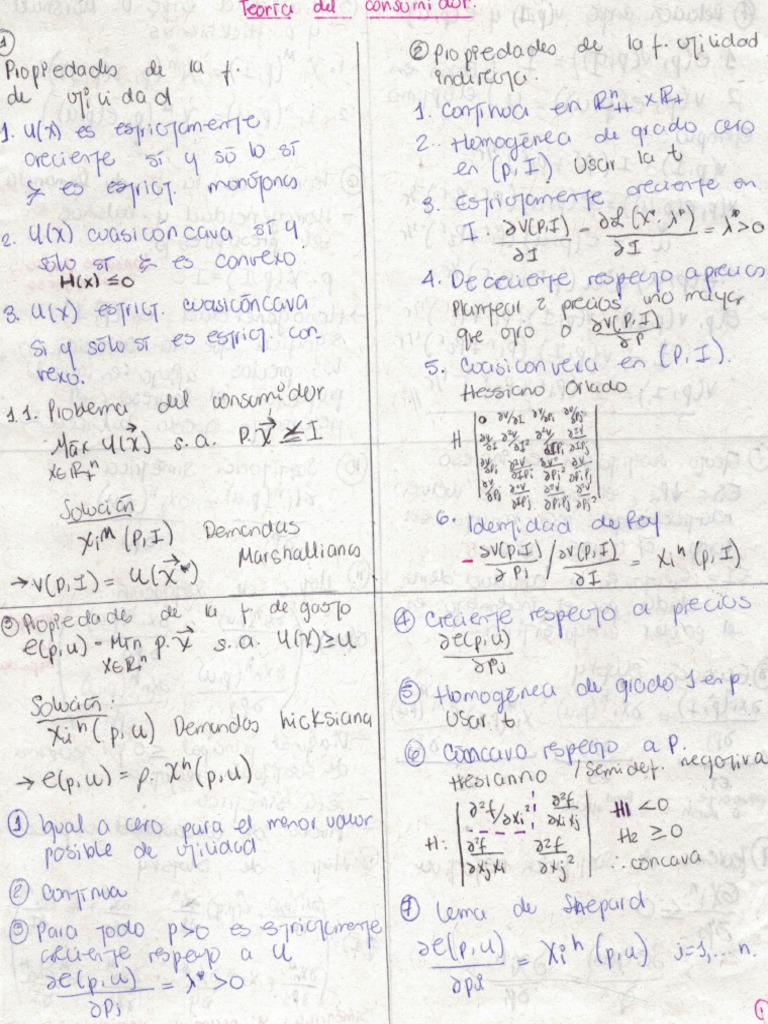 Teoría del consumidor.
①
Propiedades de la f.
de utilidad
1. U(x) es estrictamente
creciente sí y sólo sí
≿ es estrict. monótonas
2. U(x) cuasicóncava sí y
sólo sí ≿ es convexo
H(x) ≤ 0
3. U(x) estrict. cuasicóncava
sí y sólo sí es estrict. con-
vexo.
1.1. Problema del consumidor
Máx U(x⃗) s.a. p⃗.x⃗ ≤ I
x∈R₊ⁿ
Solución
xᵢᴹ(P,I) Demandas
Marshallianas
→ V(p,I) = U(x⃗*)
② Propiedades de la f. utilidad
indirecta.
1. Continua en Rⁿ₊₊ x R₊
2. Homogénea de grado cero
en (p,I) Usar la t
3. Estrictamente creciente en
I ∂V(P,I)/∂I - ∂L(x*,λ*)/∂I = λ* > 0
4. Decreciente respecto a precios
Plantear 2 precios uno mayor
que otro o ∂V(P,I)/∂P
5. Cuasiconvexa en (P,I).
Hessiano Orlado
H
6. Identidad de Roy
- ∂V(P,I)/∂Pi / ∂V(P,I)/∂I = xiʰ(p,I)
③ Propiedades de la f. de gasto
e(p,u) = Mín p.x⃗ s.a. U(x) ≥ U
x∈R₊ⁿ
Solución:
xiʰ(p,u) Demandas hicksiana
→ e(p,u) = p. xʰ(p,u)
① Igual a cero para el menor valor
posible de utilidad
② Continua
③ Para todo p>0 es estrictamente
creciente respecto a U
∂e(p,u)/∂Pj = λ* > 0
④ Creciente respecto a precios
∂e(p,u)/∂Pj
⑤ Homogénea de grado 1 en p.
Usar t
⑥ Cóncava respecto a P.
Hesianno / Semidef. negativa
H: | ∂²f/∂xi² ∂²f/∂xixj | H1 < 0
| ∂²f/∂xjxi ∂²f/∂xj² | H2 ≥ 0
∴ cóncava
⑦ Lema de Shepard
∂e(p,u)/∂pi = Xiʰ(p,u) j=1,... n.